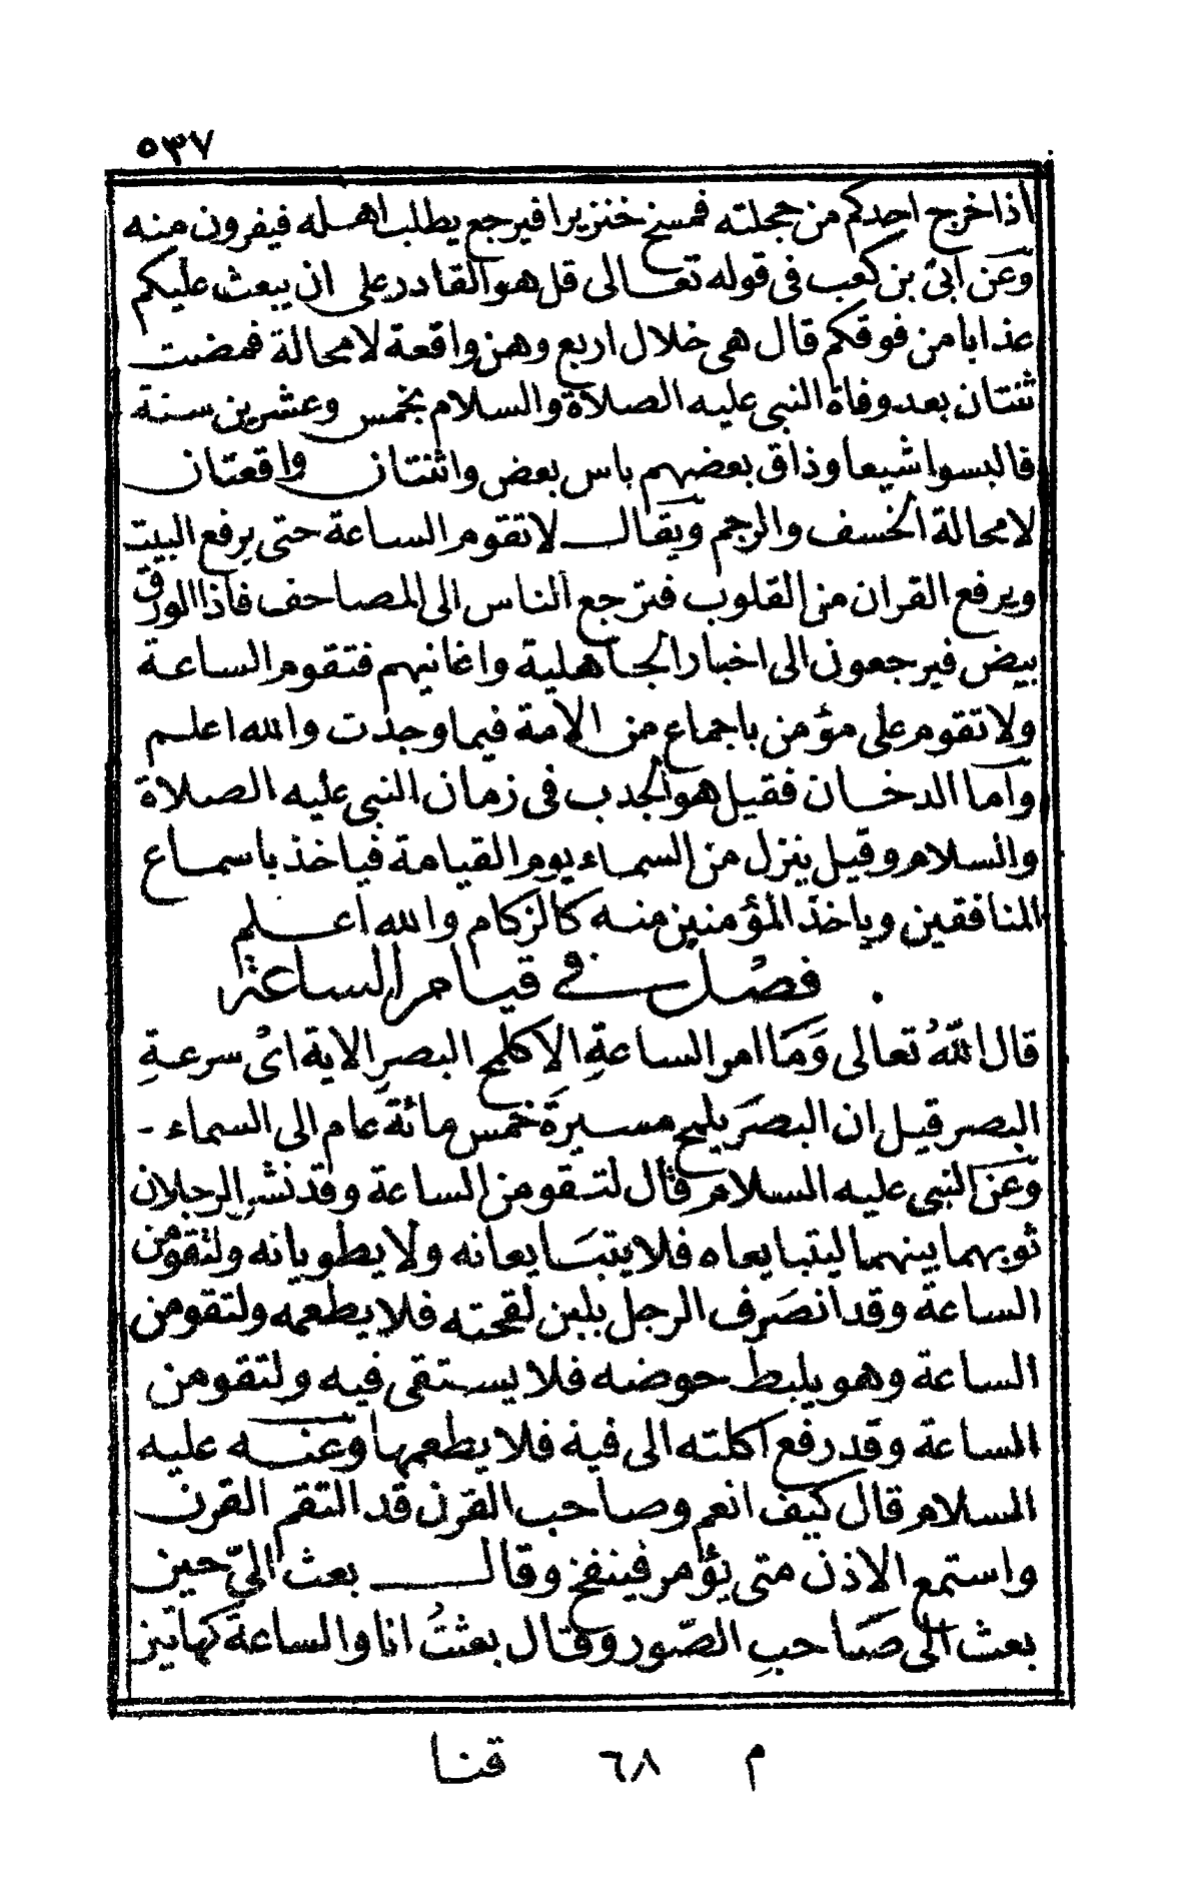 ٥٣٧
اذا خرج احدكم من حجلته فمسخ خنزيرا فيرجع يطلب اهله فيفرون منه
وعن ابى بن كعب فى قوله تعالى قل هو القادر على ان يبعث عليكم
عذابا من فوقكم قال هى خلال اربع وهن واقعة لا محالة فمضت
ثنتان بعد وفاة النبى عليه الصلاة والسلام بخمس وعشرين سنة
فالبسوا شيعا وذاق بعضهم باس بعض واثنتان واقعتان
لا محالة الخسف والرجم ويقال لا تقوم الساعة حتى يرفع البيت
ويرفع القران من القلوب فترجع الناس الى المصاحف فاذا الورق
بيض فيرجعون الى اخبار الجاهلية واغانيهم فتقوم الساعة
ولا تقوم على مؤمن باجماع من الامة فيما وجدت والله اعلم
وأما الدخان فقيل هو الجدب فى زمان النبى عليه الصلاة
والسلام وقيل ينزل من السماء يوم القيامة فياخذ باسماع
المنافقين وياخذ المؤمنين منه كالزكام والله اعلم
فصل فى قيام الساعة
قال اللّهُ تعالى وَمَا امر الساعةِ الا كلمح البصرِ الاية اىْ سرعةِ
البصر قيل ان البصَر يلمح مسيرةَ خمس مائة عام الى السماء -
وعَن النبى عليه السلام قال لتقومن الساعة وقد نشر الرجلان
ثوبهما بينهما ليتبايعاه فلا يتبَايعانه ولا يطويانه ولتقومن
الساعة وقد انصَرف الرجل بلبن لقحته فلا يطعمه ولتقومن
الساعة وهو يلبط حوضه فلا يستقى فيه ولتقومن
الساعة وقد رفع اكلته الى فيه فلا يطعمها وعنه عليه
السلام قال كيف انعم وصاحب القرن قد التقم القرن
واستمع الاذن متى يؤمر فينفخ وقال بعث الىّ حين
بعث الى صَاحبِ الصّور وقال بعثتُ انا والساعةَ كهاتين
م ٦٨ قنا